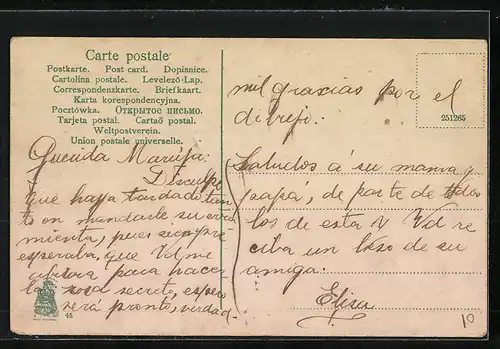 Carte postale
Postkarte. Post card. Dopisnice.
Cartolina postale. Levelező-Lap.
Correspondenzkarte. Briefkaart.
Karta korespondencyjna.
Pocztówka. ОТКРЫТОЕ ПИСЬМО.
Tarjeta postal. Cartaõ postal.
Weltpostverein.
Union postale universelle.
251265
Querida Maruja:
Disculpe
que haya tardado tan
to en mandarle su
mienta, pues siempre
esperaba, que Vd me
para hacer
la rosa secreto, espero
será pronto, verdad.
45
mil gracias por el
dibujo.
Saludos á su mama y
papá, de parte de todos
los de esta y Vd re
ciba un beso de su
amiga.
Elisa
10